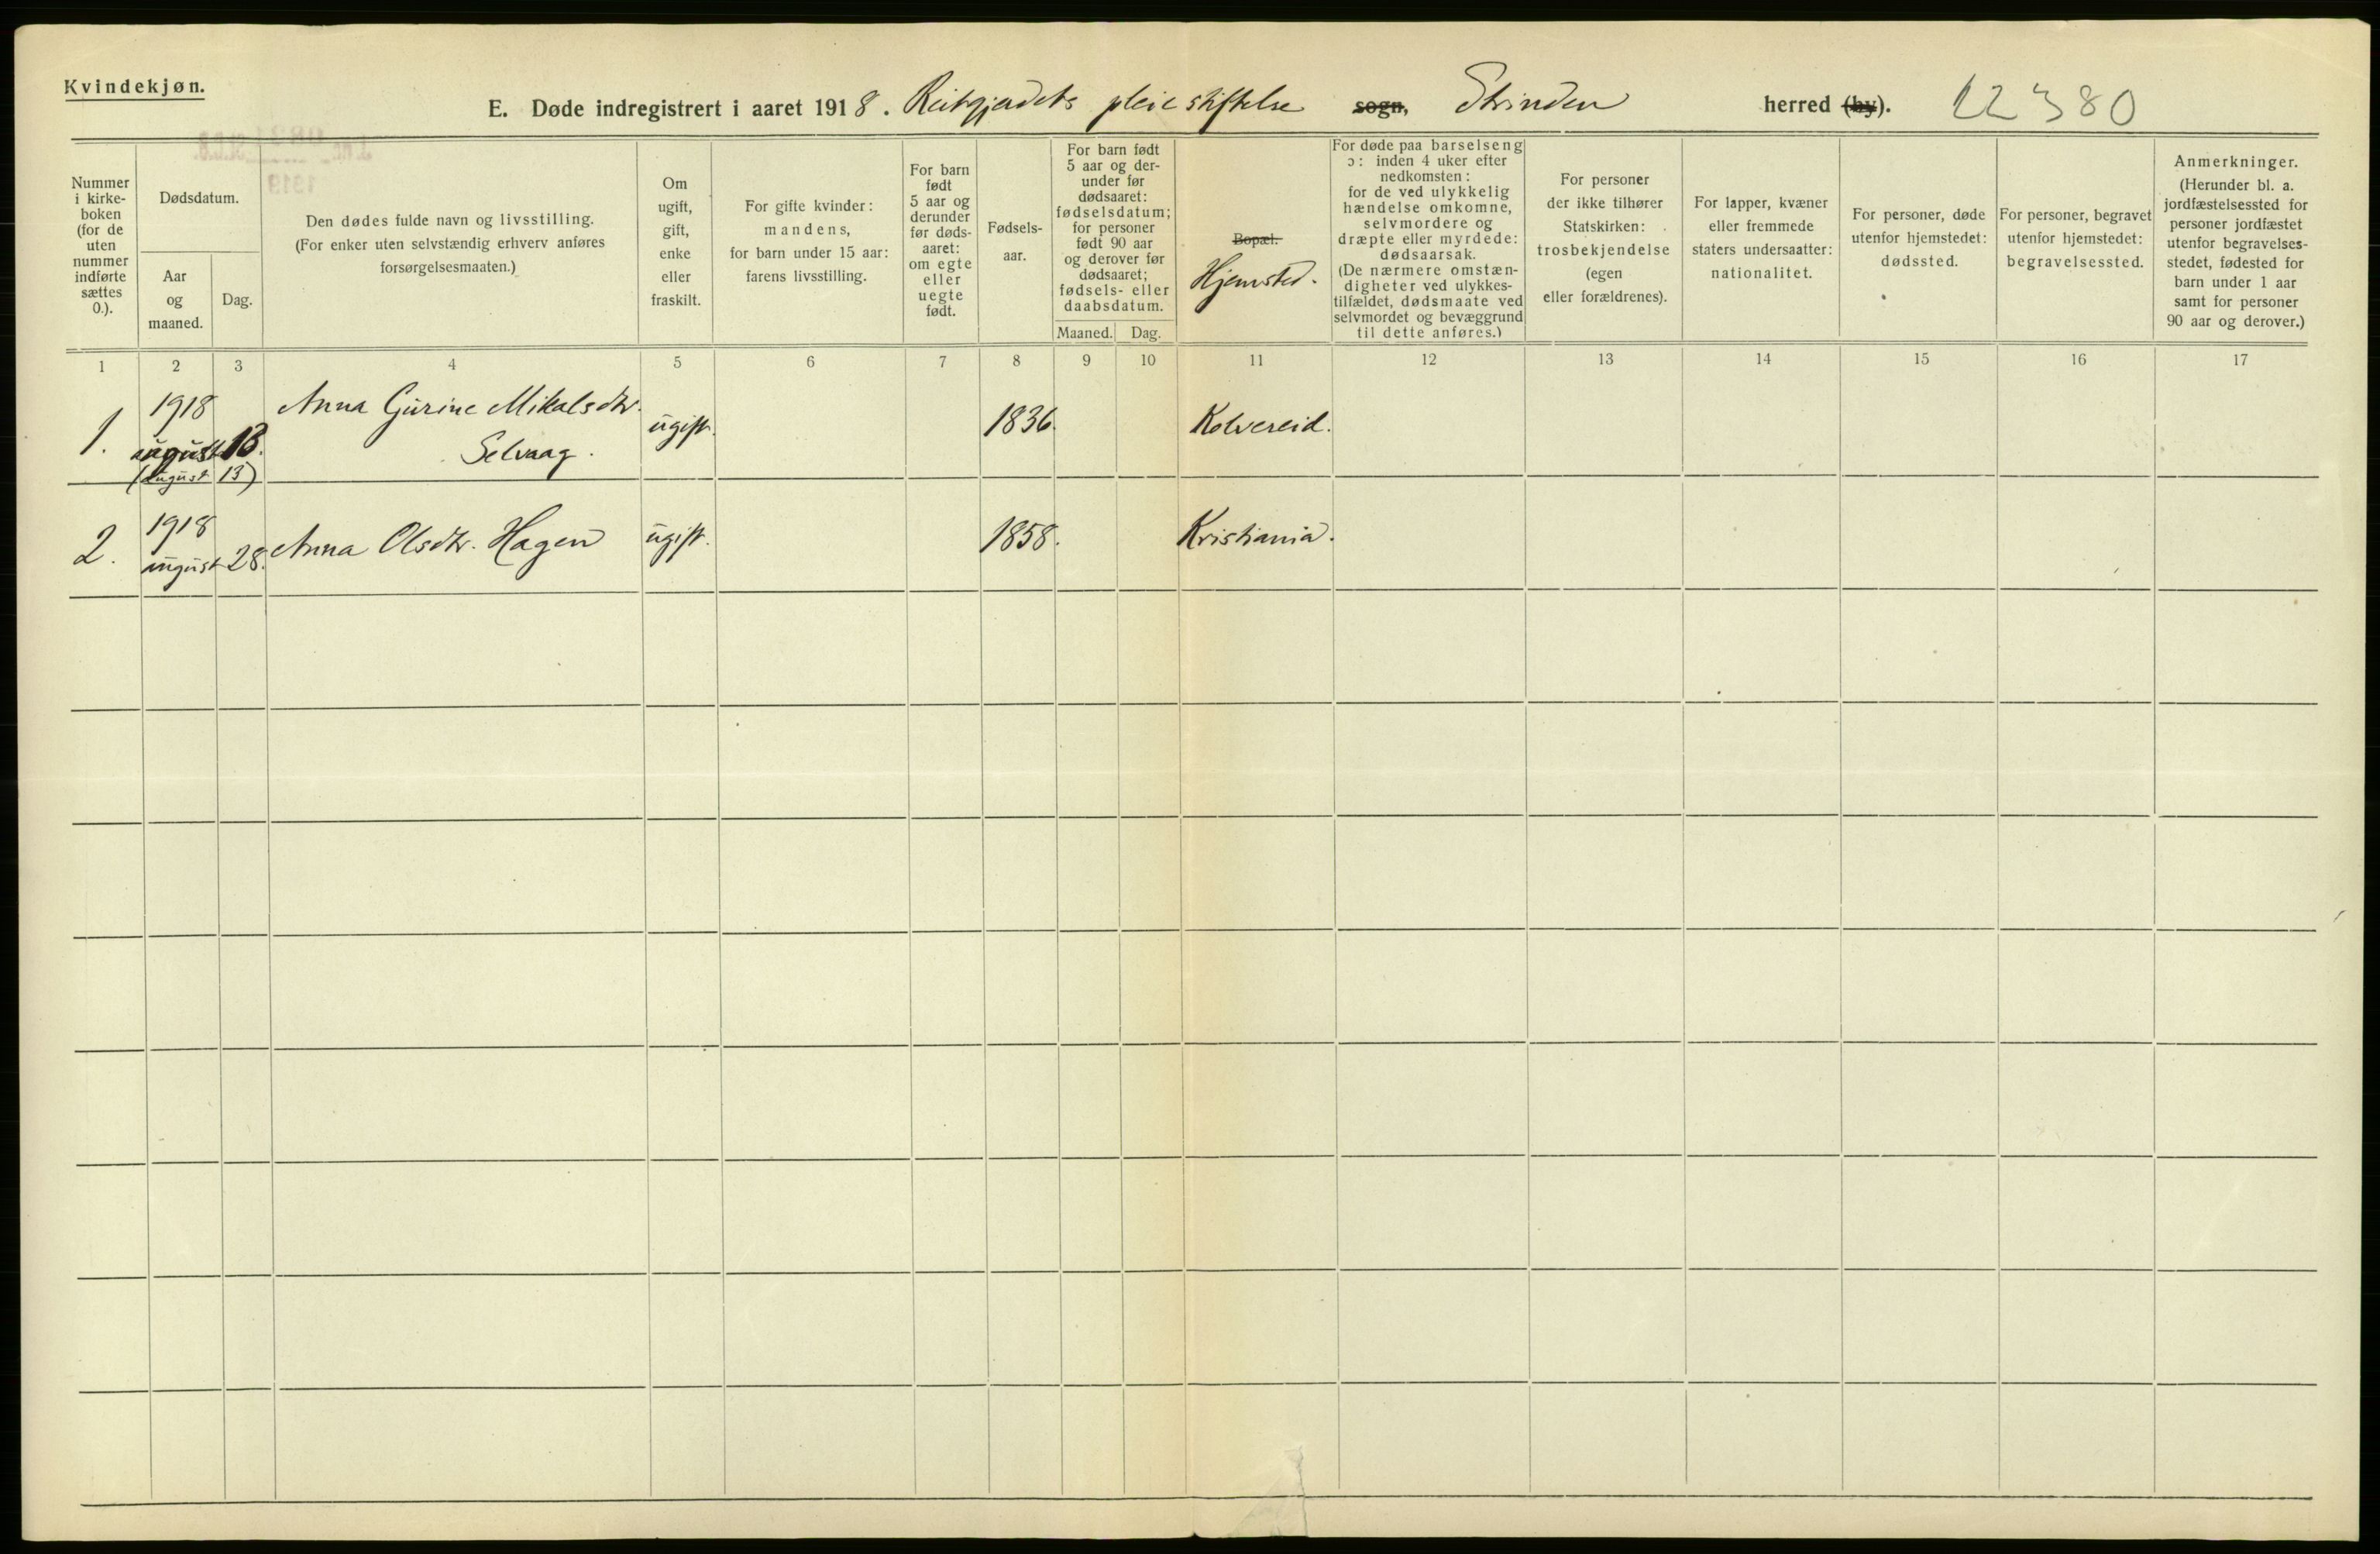 Kvindekjøn.
E. Døde indregistrert i aaret 1918. Reitgjerdets pleiestiftelse sogn, Strinden herred (by). 12380
Nummer
i kirke-
boken
(for de
uten
nummer
indførte
sættes
0.).
Dødsdatum.
Aar
og
maaned.
Dag.
Den dødes fulde navn og livsstilling.
(For enker uten selvstændig erhverv anføres
forsørgelsesmaaten.)
Om
ugift,
gift,
enke
eller
fraskilt.
For gifte kvinder:
mandens,
for barn under 15 aar:
farens livsstilling.
For barn
født
5 aar og
derunder
før døds-
aaret:
om egte
eller
uegte
født.
Fødsels-
aar.
For barn født
5 aar og der-
under før
dødsaaret:
fødselsdatum;
for personer
født 90 aar
og derover før
dødsaaret;
fødsels- eller
daabsdatum.
Maaned. Dag.
Bopæl.
Hjemsted.
For døde paa barselseng
ɔ: inden 4 uker efter
nedkomsten:
for de ved ulykkelig
hændelse omkomne,
selvmordere og
dræpte eller myrdede:
dødsaarsak.
(De nærmere omstæn-
digheter ved ulykkes-
tilfældet, dødsmaate ved
selvmordet og bevæggrund
til dette anføres.)
For personer
der ikke tilhører
Statskirken:
trosbekjendelse
(egen
eller forældrenes).
For lapper, kvæner
eller fremmede
staters undersaatter:
nationalitet.
For personer, døde
utenfor hjemstedet:
dødssted.
For personer, begravet
utenfor hjemstedet:
begravelsessted.
Anmerkninger.
(Herunder bl. a.
jordfæstelsessted for
personer jordfæstet
utenfor begravelses-
stedet, fødested for
barn under 1 aar
samt for personer
90 aar og derover.)
1 2 3 4 5 6 7 8 9 10 11 12 13 14 15 16 17
1918 Anna Gurine Mikalsdtr.
1. august 13. Selvaag. ugift. 1836. Kolvereid.
(August 13)
1918
2. august 28. Anna Olsdtr. Hagen ugift. 1858. Kristiania.